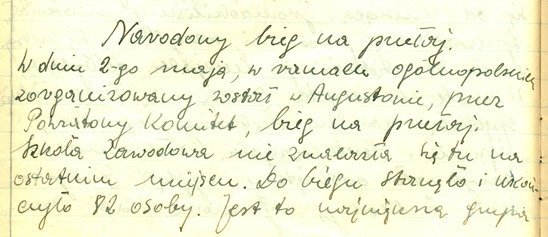 Narodowy bieg na przełaj.
W dniu 2-go maja, w ramach ogólnopolskich
zorganizowany został w Augustowie, przez
Powiatowy Komitet, bieg na przełaj.
Szkoła Zawodowa nie znalazła się tu na
ostatnim miejscu. Do biegu stanęło i ukoń
czyło 82 osoby. Jest to największa grupa